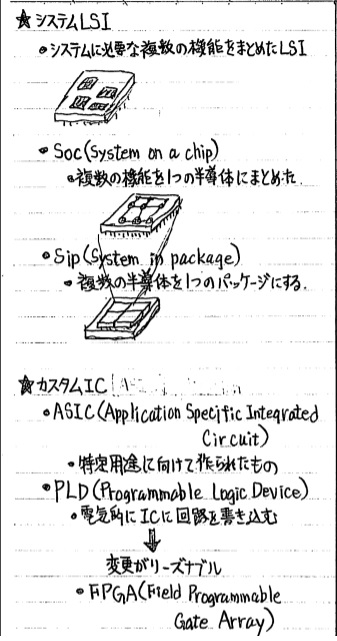 ★システムLSI
•システムに必要な複数の機能をまとめたLSI
•Soc(System on a chip)
•複数の機能を1つの半導体にまとめた
•Sip(System in package)
•複数の半導体を1つのパッケージにする.
★カスタムIC
•ASIC(Application Specific Integrated
Circuit)
•特定用途に向けて作られたもの
•PLD(Programmable Logic Device)
•電気所にICに回路を書き込む
⇓
変更がリーズナブル
•FPGA(Field Programmable
Gate Array)